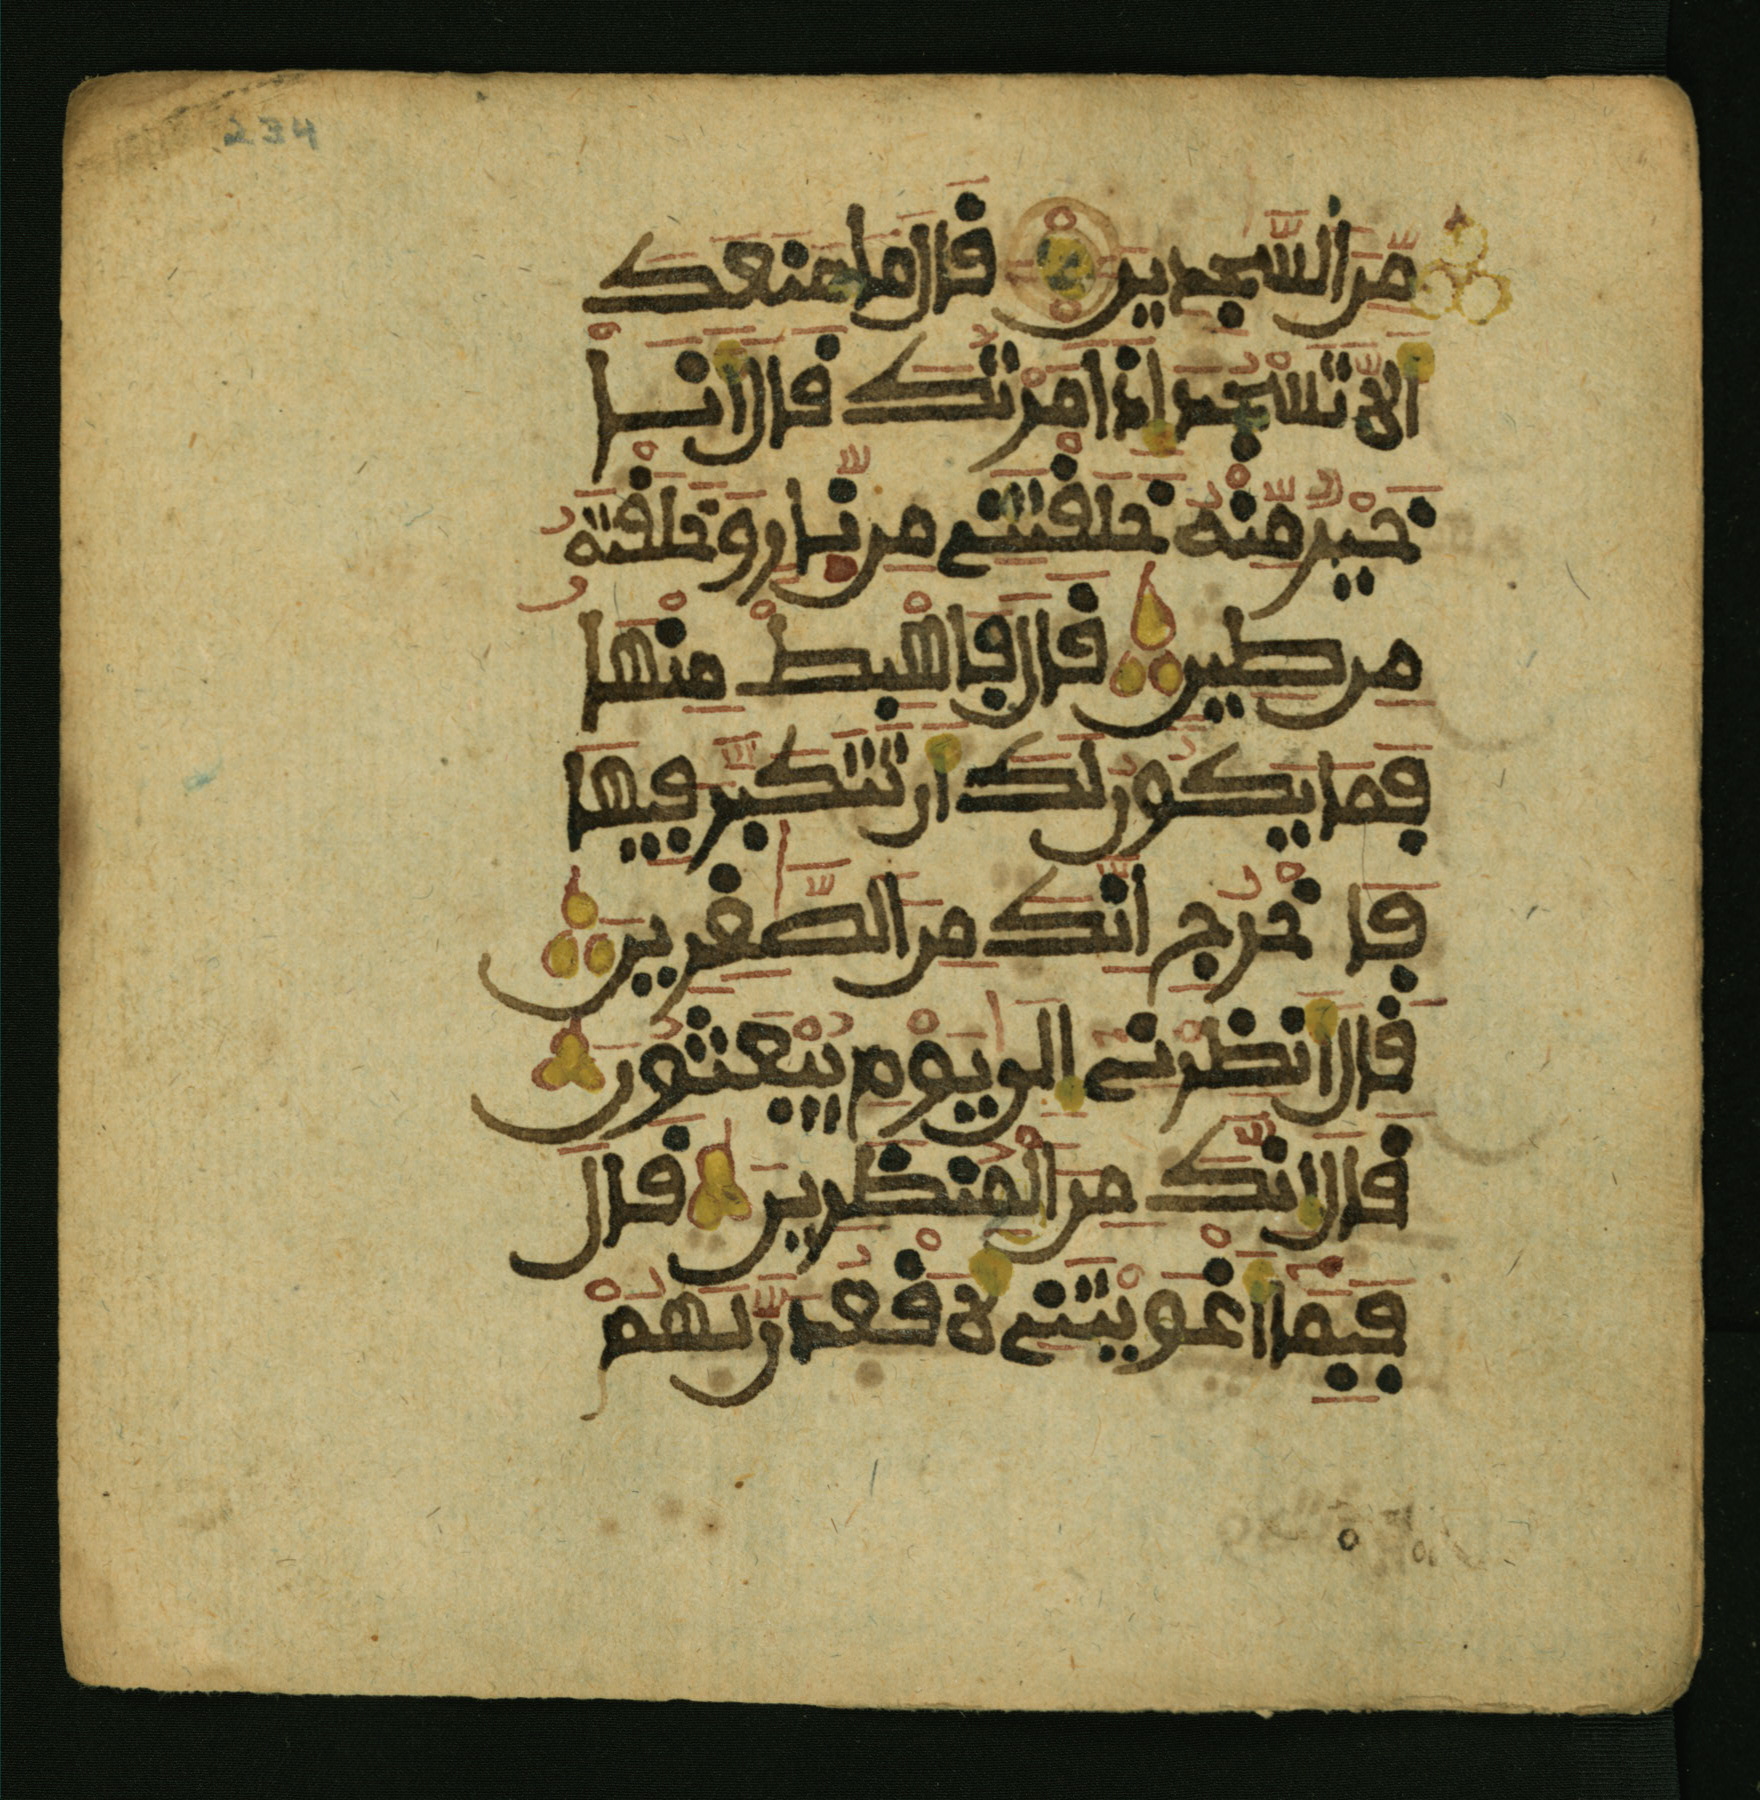 234
مِّنَ السَّٰجِدِينَ قَالَ مَا مَنَعَكَ
أَلَّا تَسْجُدَ إِذْ أَمَرْتُكَ قَالَ أَنَا
خَيْرٌ مِّنْهُ خَلَقْتَنِے مِن نَّارٍ وَخَلَقْتَهُ
مِن طِينٍ قَالَ فَاهْبِطْ مِنْهَا
فَمَا يَكُونُ لَكَ أَن تَتَكَبَّرَ فِيهَا
فَاخْرُجْ إِنَّكَ مِنَ الصَّٰغِرِينَ
قَالَ أَنظِرْنِے إِلَىٰ يَوْمِ يُبْعَثُونَ
قَالَ إِنَّكَ مِنَ الْمُنظَرِينَ قَالَ
فَبِمَا أَغْوَيْتَنِے لَأَقْعُدَنَّ لَهُمْ